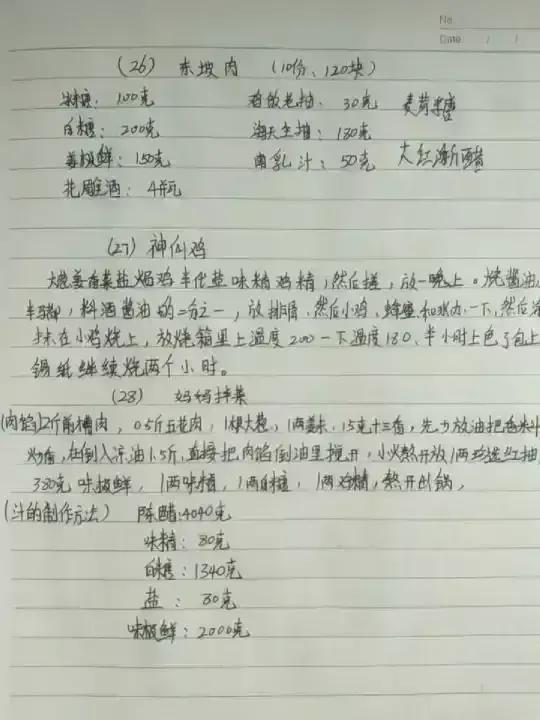 No
Date / /
(26) 东坡肉 (10份、120块)
冰糖: 100克 老抽: 30克 麦芽糖
白糖: 200克 海天生抽: 130克
味极鲜: 150克 南乳汁: 50克 大红浙醋
花雕酒: 4瓶
(27) 神仙鸡
大葱姜香菜盐焗鸡半代盐味精鸡精,然后搓,放一晚上。烧酱油
料酒酱油的二分之一,放排骨、然后小鸡、蜂蜜和一下,然后
抹在小鸡烧上,放烧箱里上温度200一下温度180、半小时上色了包上
锡纸继续烧两个小时。
(28) 妈妈拌菜
(肉馅)2斤前槽肉,0.5斤五花肉,1棵大葱,1两姜末、15克十三香,先少放油把
炒香,在倒入凉油1.5斤,直接把肉馅倒油里搅开,小火熬开放1两红抽
380克味极鲜,1两味精,1两白糖,1两鸡精,熬开出锅,
(汁的制作方法) 陈醋:4040克
味精: 80克
白糖: 1340克
盐: 80克
味极鲜: 2000克